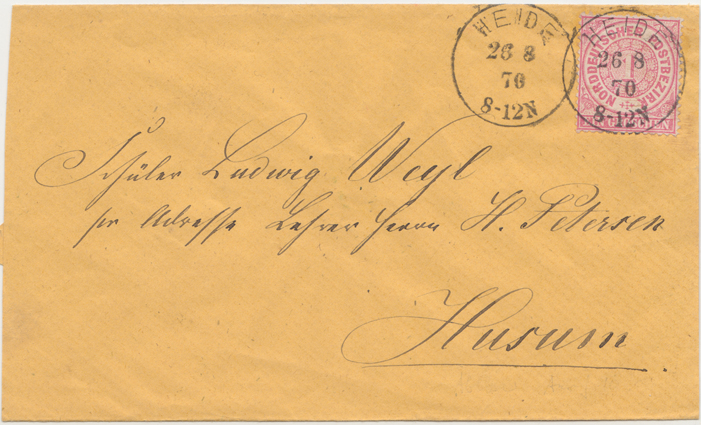 HEIDE
26 8
70
8-12N
HEIDE
26 8
70
8-12N
NORDDEUTSCHER POSTBEZIRK
1
GROSCHEN
Schüler Ludwig Weyl
pr Adresse Lehrer Herrn H. Petersen
Husum.